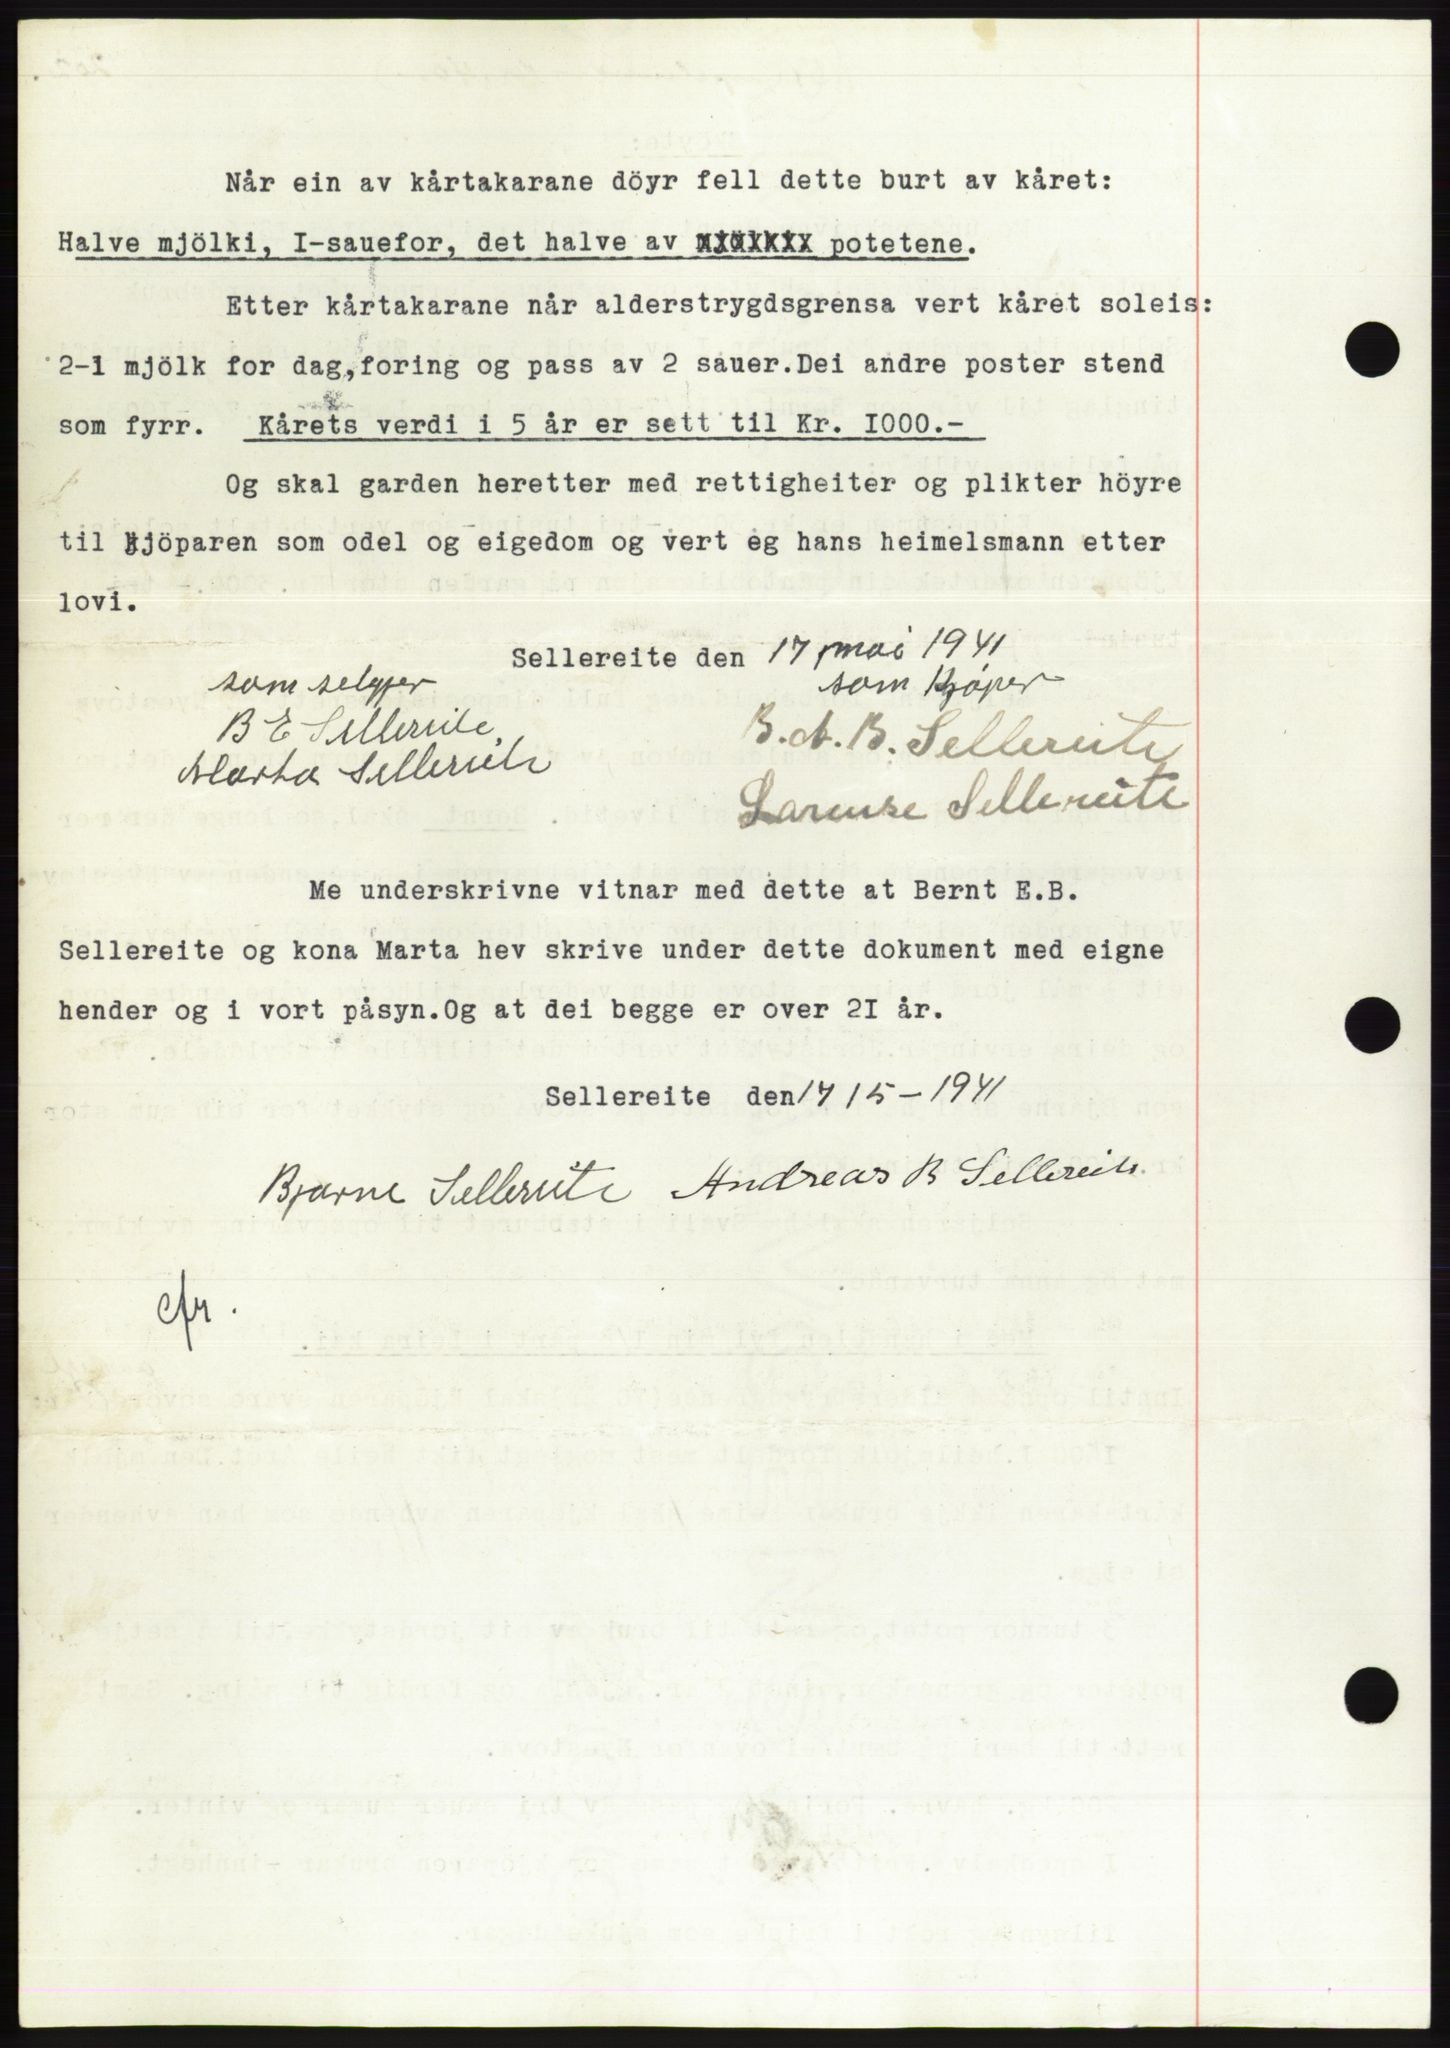 Når ein av kårtakarane döyr fell dette burt av kåret:
Halve mjölki, I-sauefor, det halve av potetene.
Etter kårtakarane når alderstrygdsgrensa vert kåret soleis:
2-1 mjölk for dag, foring og pass av 2 sauer.Dei andre poster stend
som fyrr. Kårets verdi i 5 år er sett til Kr. I000.-
Og skal garden heretter med rettigheiter og plikter höyre
til kjöparen som odel og eigedom og vert eg hans heimelsmann etter
lovi.
Sellereite den 17 mai 1941
som selgjer som kjøper
B E Sellereite. B. A. B. Sellereite
Marta Sellereite Larense Sellereite
Me underskrivne vitnar med dette at Bernt E.B.
Sellereite og kona Marta hev skrive under dette dokument med eigne
hender og i vort påsyn.Og at dei begge er over 2I år.
Sellereite den 17/5-1941
Bjarne Sellereite Andreas B Sellereite
cfr.